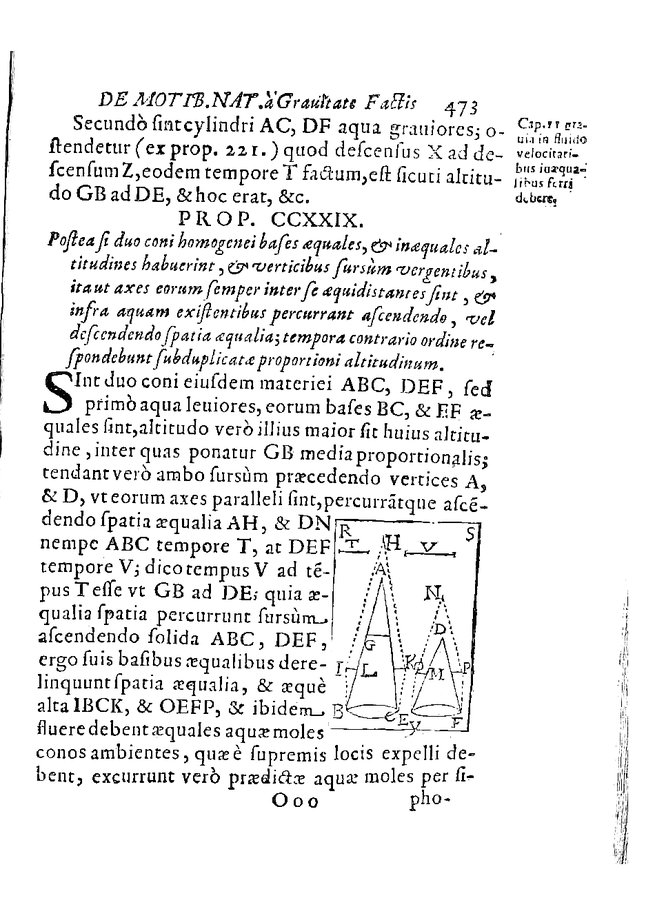 DE MOTIB.NAT.à Grauitate Factis 473
Secundò ſint cylindri AC, DF aqua grauiores; o-
ſtendetur (ex prop. 221.) quod deſcenſus X ad de-
ſcenſum Z, eodem tempore T factum, eſt ſicuti altitu-
do GB ad DE, & hoc erat, &c.
Cap. 11 gra-
uia in fluido
velocitati-
bus inæqua-
libus ferri
debere.
PROP. CCXXIX.
Poſtea ſi duo coni homogenei baſes æquales, & inæquales al-
titudines habuerint, & verticibus ſursùm vergentibus,
itaut axes eorum ſemper inter ſe æquidistantes ſint, &
infra aquam exiſtentibus percurrant aſcendendo, vel
deſcendendo ſpatia æqualia; tempora contrario ordine re-
ſpondebunt ſubduplicatæ proportioni altitudinum.
SInt duo coni eiuſdem materiei ABC, DEF, ſed
primò aqua leuiores, eorum baſes BC, & EF æ-
quales ſint, altitudo verò illius maior ſit huius altitu-
dine, inter quas ponatur GB media proportionalis;
tendant verò ambo ſursùm præcedendo vertices A,
& D, vt eorum axes paralleli ſint, percurrātque aſcē-
dendo ſpatia æqualia AH, & DN
nempe ABC tempore T, at DEF
tempore V; dico tempus V ad tē-
pus T eſſe vt GB ad DE; quia æ-
qualia ſpatia percurrunt ſursùm
aſcendendo ſolida ABC, DEF,
ergo ſuis baſibus æqualibus dere-
linquunt ſpatia æqualia, & æquè
alta IBCK, & OEFP, & ibidem
fluere debent æquales aquæ moles
R S
T H V
A
N
D
G
I L K O M P
B C E V F
conos ambientes, quæ è ſupremis locis expelli de-
bent, excurrunt verò prædictæ aquæ moles per ſi-
Ooo pho-